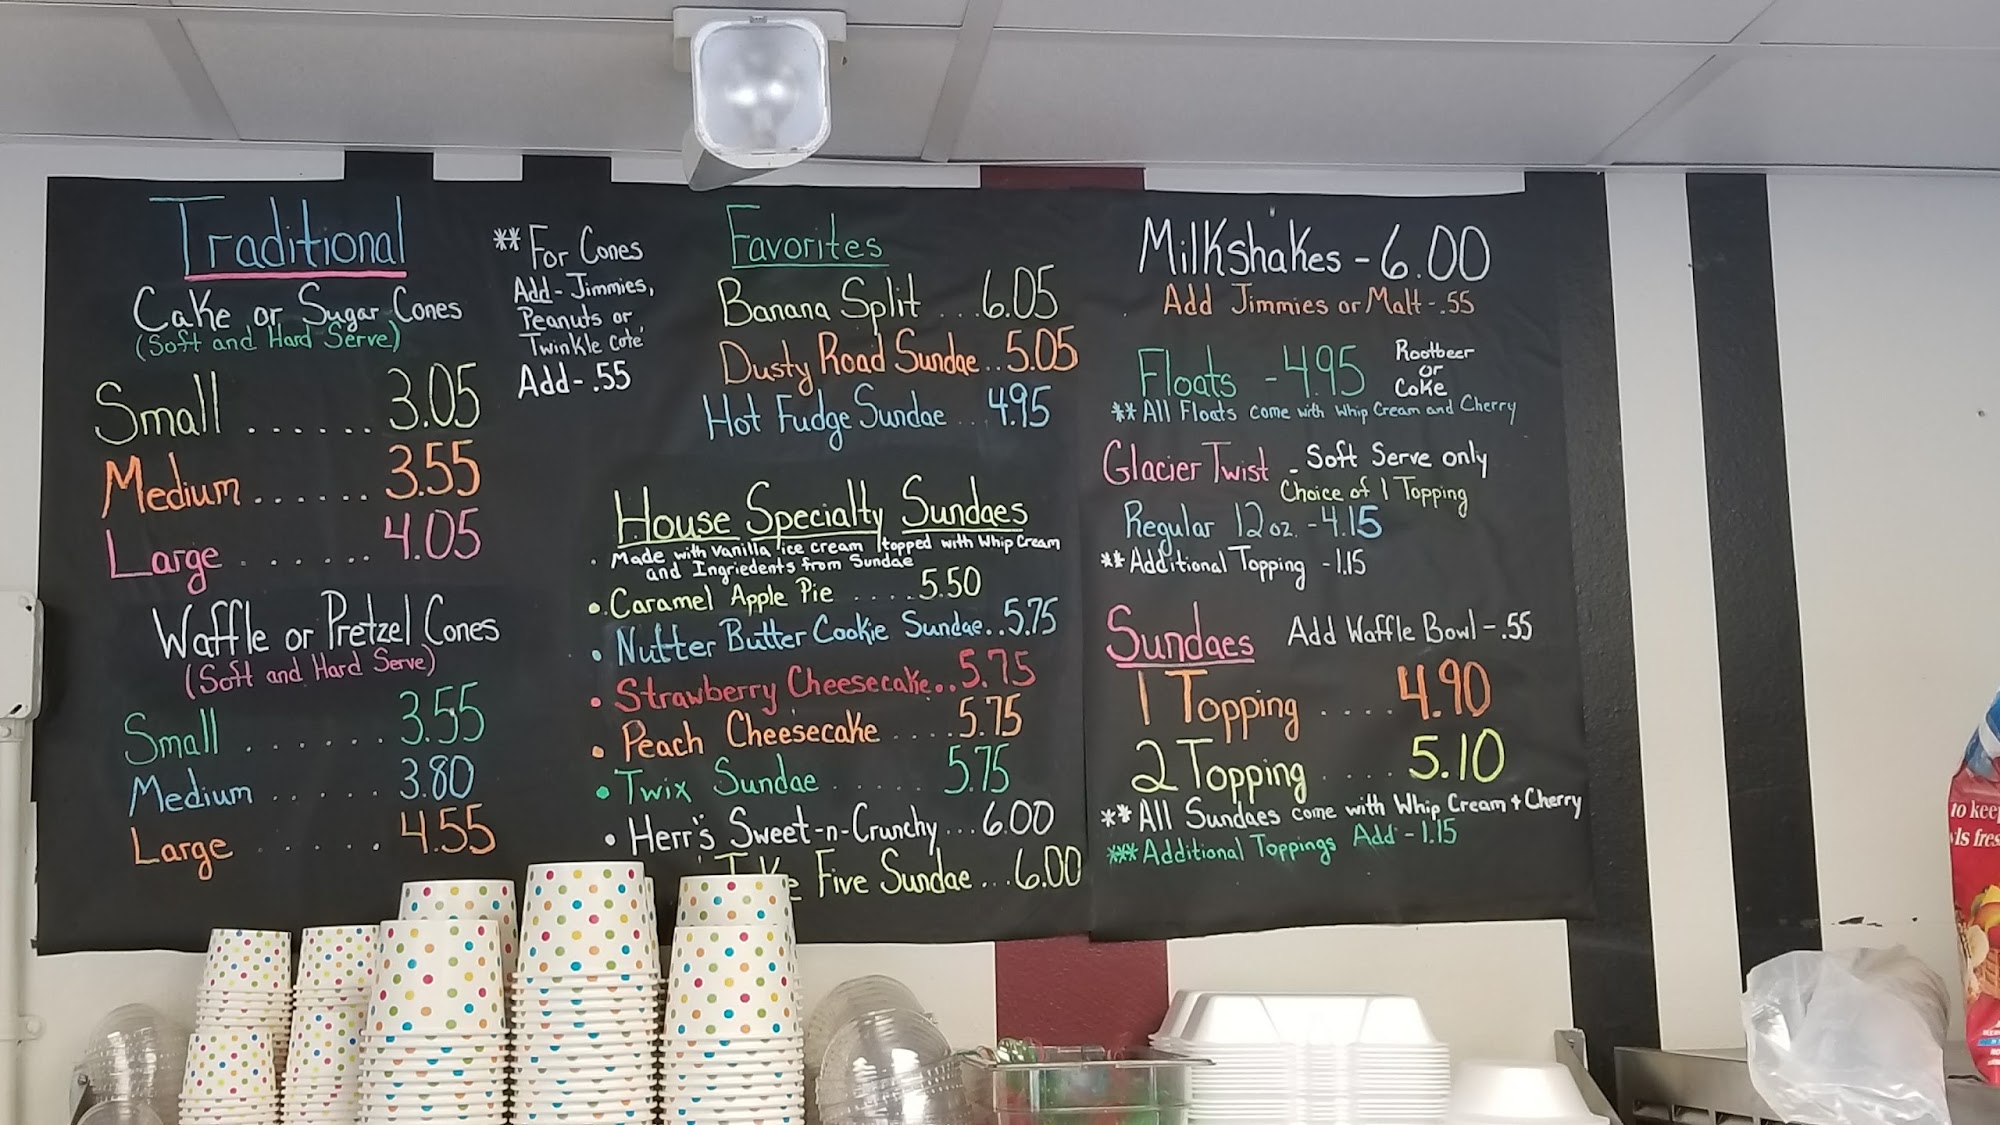 Traditional
Cake or Sugar Cones
(Soft and Hard Serve)
Small ...... 3.05
Medium ...... 3.55
Large ...... 4.05
Waffle or Pretzel Cones
(Soft and Hard Serve)
Small ...... 3.55
Medium ...... 3.80
Large ...... 4.55
** For Cones
Add - Jimmies,
Peanuts or
Twinkle cote'
Add - .55
Favorites
Banana Split ... 6.05
Dusty Road Sundae .. 5.05
Hot Fudge Sundae ... 4.95
House Specialty Sundaes
. Made with Vanilla ice cream topped with Whip Cream
and Ingriedents from Sundae
• Caramel Apple Pie .... 5.50
• Nutter Butter Cookie Sundae.. 5.75
• Strawberry Cheesecake.. 5.75
• Peach Cheesecake .... 5.75
• Twix Sundae ...... 5.75
• Herr's Sweet-n-Crunchy ... 6.00
Five Sundae ... 6.00
Milkshakes - 6.00
Add Jimmies or Malt - .55
Floats - 4.95 Rootbeer
or
Coke
** All Floats come with Whip Cream and Cherry
Glacier Twist - Soft Serve only
Choice of 1 Topping
Regular 12 oz. - 4.15
** Additional Topping - 1.15
Sundaes Add Waffle Bowl - .55
1 Topping .... 4.90
2 Topping .... 5.10
** All Sundaes come with Whip Cream + Cherry
*** Additional Toppings Add - 1.15
to keep